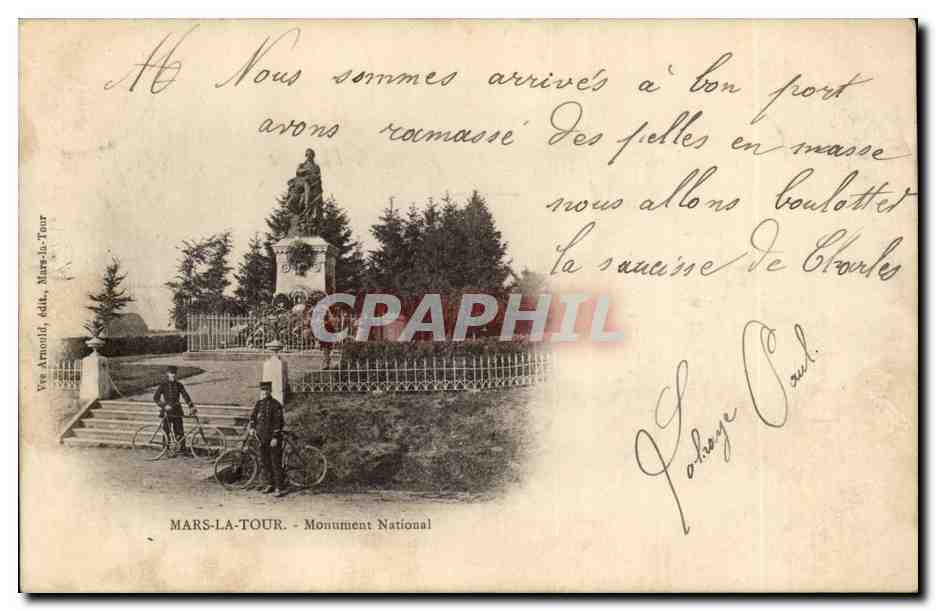 Nous sommes arrivés à bon port
avons ramassé des pelles en masse
nous allons boulotter
la saucisse de Charles
Paul
Vve Arnould, édit., Mars-la-Tour
CPAPHIL
MARS-LA-TOUR. - Monument National